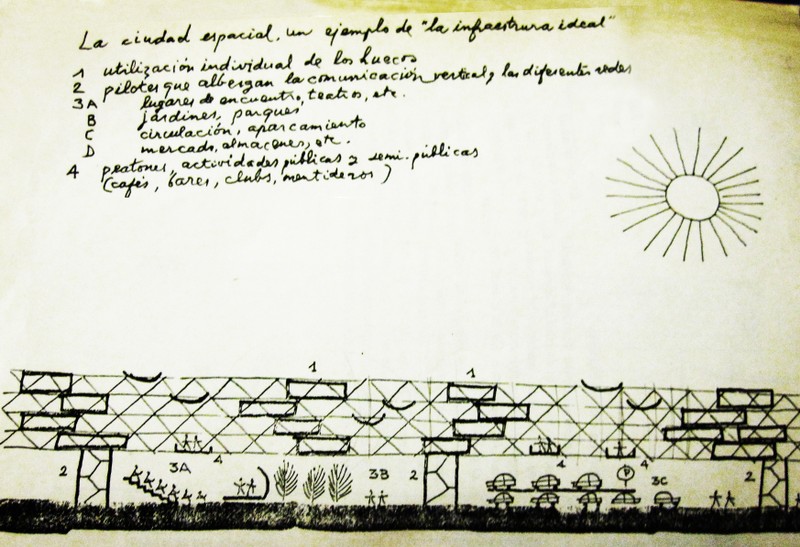 La ciudad espacial, un ejemplo de "la infraestrura ideal"
1 utilización individual de los huecos
2 pilotes que albergan la comunicación vertical y las diferentes redes
3A lugares de encuentro, teatros, etc.
B jardines, parques
C circulación, aparcamiento
D mercado, almacenes, etc.
4 peatones, actividades públicas y semi-públicas
(cafés, bares, clubs, mentideros)
1 1
2 3A 4 3B 2 4 P 4 3C 2